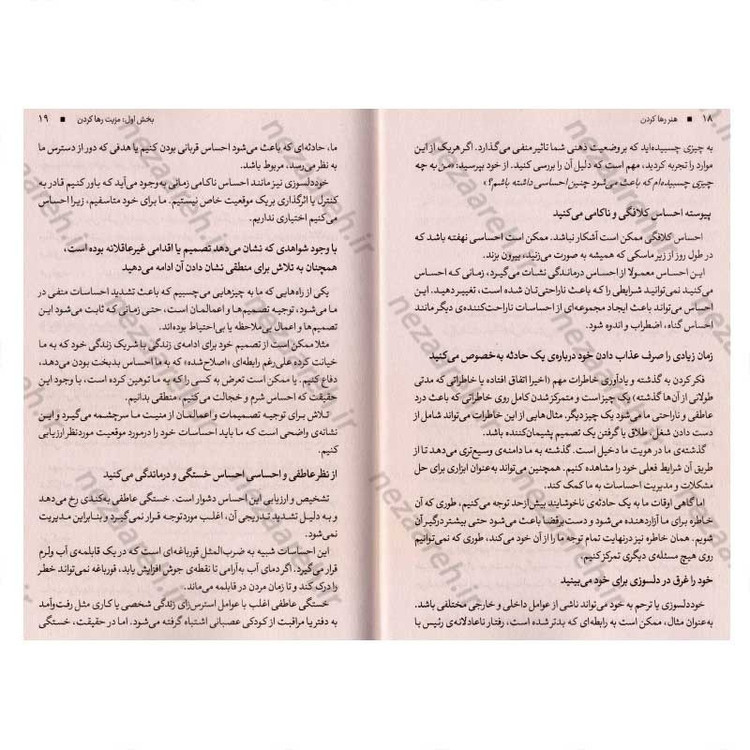 ۱۸ ■ هنر رها کردن
به چیزی چسبیده‌اید که بر وضعیت ذهنی شما تاثیر منفی می‌گذارد. اگر هریک از این
موارد را تجربه کردید، مهم است که دلیل آن را بررسی کنید. از خود بپرسید: «من به چه
چیزی چسبیده‌ام که باعث می‌شود چنین احساسی داشته باشم؟»
پیوسته احساس کلافگی و ناکامی می‌کنید
احساس کلافگی ممکن است آشکار نباشد. ممکن است احساسی نهفته باشد که
در طول روز از زیر ماسکی که همیشه به صورت می‌زنید، بیرون بزند.
این احساس معمولا از احساس درماندگی نشات می‌گیرد، زمانی که احساس
می‌کنید نمی‌توانید شرایطی را که باعث ناراحتی‌تان شده است، تغییر دهید. این
احساس می‌تواند باعث ایجاد مجموعه‌ای از احساسات ناراحت‌کننده‌ی دیگر مانند
احساس گناه، اضطراب و اندوه شود.
زمان زیادی را صرف عذاب دادن خود درباره‌ی یک حادثه به‌خصوص می‌کنید
فکر کردن به گذشته و یادآوری خاطرات مهم (اخیرا اتفاق افتاده یا خاطراتی که مدتی
طولانی از آن‌ها گذشته) یک چیز است و متمرکز شدن کامل روی خاطراتی که باعث درد
عاطفی و ناراحتی ما می‌شود یک چیز دیگر. مثال‌هایی از این خاطرات می‌تواند شامل از
دست دادن شغل، طلاق یا گرفتن یک تصمیم پشیمان‌کننده باشد.
گذشته‌ی ما در هویت ما دخیل است. گذشته به ما دامنه‌ی وسیع‌تری می‌دهد تا از
طریق آن شرایط فعلی خود را مشاهده کنیم. همچنین می‌تواند به‌عنوان ابزاری برای حل
مشکلات و مدیریت احساسات به ما کمک کند.
اما گاهی اوقات ما به یک حادثه‌ی ناخوشایند بیش‌ازحد توجه می‌کنیم، طوری که آن
خاطره برای ما آزاردهنده می‌شود و دست‌برقضا باعث می‌شود حتی بیشتر درگیر آن
شویم. همان خاطره نیز درنهایت تمام توجه ما را از آن خود می‌کند، طوری که نمی‌توانیم
روی هیچ مسئله‌ی دیگری تمرکز کنیم.
خود را غرق در دلسوزی برای خود می‌بینید
خوددلسوزی یا ترحم به خود می‌تواند ناشی از عوامل داخلی و خارجی مختلفی باشد.
به‌عنوان مثال، ممکن است به رابطه‌ای که بدتر شده است، رفتار ناعادلانه‌ی رئیس با
بخش اول: مزیت رها کردن ■ ۱۹
ما، حادثه‌ای که باعث می‌شود احساس قربانی بودن کنیم یا هدفی که دور از دسترس ما
به نظر می‌رسد، مربوط باشد.
خوددلسوزی نیز مانند احساس ناکامی زمانی به‌وجود می‌آید که باور کنیم قادر به
کنترل یا اثرگذاری بر یک موقعیت خاص نیستیم. ما برای خود متاسفیم، زیرا احساس
می‌کنیم اختیاری نداریم.
با وجود شواهدی که نشان می‌دهد تصمیم یا اقدامی غیرعاقلانه بوده است،
همچنان به تلاش برای منطقی نشان دادن آن ادامه می‌دهید
یکی از راه‌هایی که ما به چیزهایی می‌چسبیم که باعث تشدید احساسات منفی در
ما می‌شود، توجیه تصمیم‌ها و اعمالمان است، حتی زمانی که ثابت می‌شود این
تصمیم‌ها و اعمال بی‌ملاحظه یا بی‌احتیاط بوده‌اند.
مثلا ممکن است از تصمیم خود برای ادامه‌ی زندگی با شریک زندگی خود که به ما
خیانت کرده علی‌رغم رابطه‌ای «اصلاح‌شده» که به ما احساس بدبخت بودن می‌دهد،
دفاع کنیم. یا ممکن است تعرض به کسی را که به ما توهین کرده است، با وجود این
حقیقت که احساس شرم و خجالت می‌کنیم، منطقی بدانیم.
تلاش برای توجیه تصمیمات و اعمالمان از منیت ما سرچشمه می‌گیرد و این
نشانه‌ی واضحی است که ما باید احساسات خود را درمورد موقعیت موردنظر ارزیابی
کنیم.
از نظر عاطفی و احساسی احساس خستگی و درماندگی می‌کنید
تشخیص و ارزیابی این احساس دشوار است. خستگی عاطفی به‌کندی رخ می‌دهد
و به دلیل تشدید تدریجی آن، اغلب موردتوجه قرار نمی‌گیرد و بنابراین مدیریت
نمی‌شود.
این احساسات شبیه به ضرب‌المثل قورباغه‌ای است که در یک قابلمه‌ی آب ولرم
قرار می‌گیرد. اگر دمای آب به‌آرامی تا نقطه‌ی جوش افزایش یابد، قورباغه نمی‌تواند خطر
را درک کند و تا زمان مردن در قابلمه می‌ماند.
خستگی عاطفی اغلب با عوامل استرس‌زای زندگی شخصی یا کاری مثل رفت‌وآمد
به دفتر یا مراقبت از کودکی عصبانی اشتباه گرفته می‌شود. اما در حقیقت، خستگی
nezaareh.ir